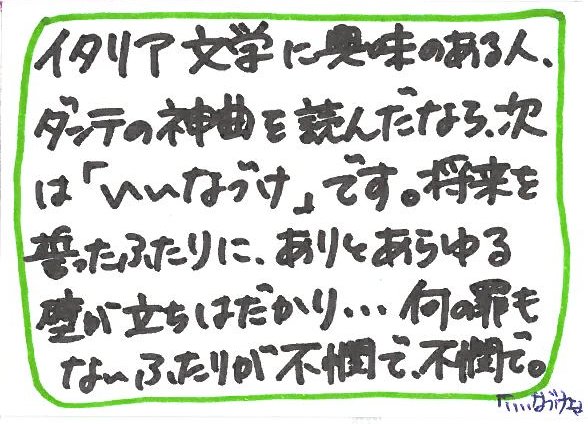 イタリア文学に興味のある人、
ダンテの神曲を読んだなら、次
は「いいなづけ」です。将来を
誓ったふたりに、ありとあらゆる
壁が立ちはだかり…何の罪も
ないふたりが不憫で、不憫で。
「いいなづけ」